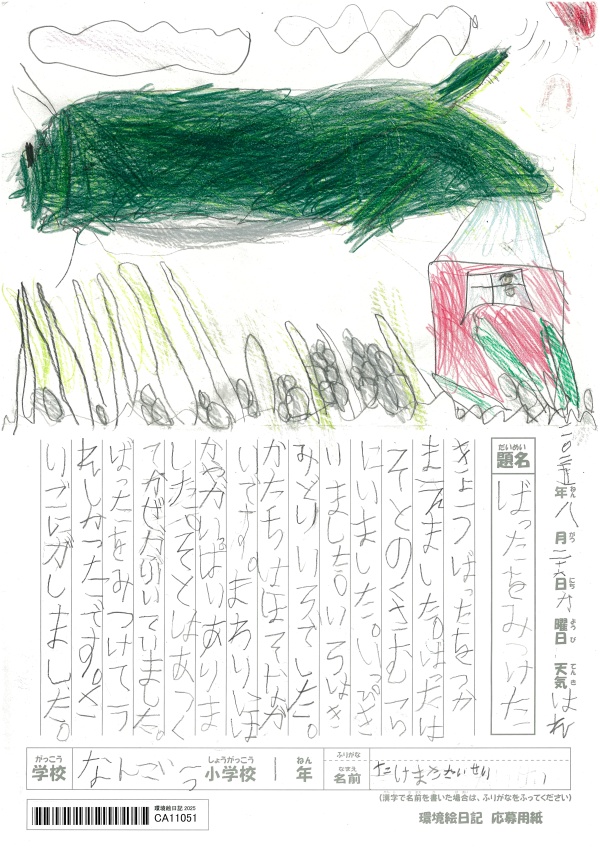 二〇二五年八月二十六日 火曜日 天気 はれ
ねん がつ にち ようび てんき
だいめい
題名
ばったをみつけた
きょうばったをつか
まえました。ばったは
そとのくさむら
にいました。いっぴき
いました。いろはき
みどりいろでした。
かたちはほそなが
いです。まわりには
かだがいっぱいありま
した。そとはあつく
てかぜがふいていました。
ばったをみつけてう
れしかったです。さ
いごにがしました。
がっこう
学校
なんごう
しょうがっこう
小学校
1
ねん
年
ふりがな
なまえ
名前
たけま
(漢字で名前を書いた場合は、ふりがなをふってください)
環境絵日記 2025
CA11051
環境絵日記 応募用紙